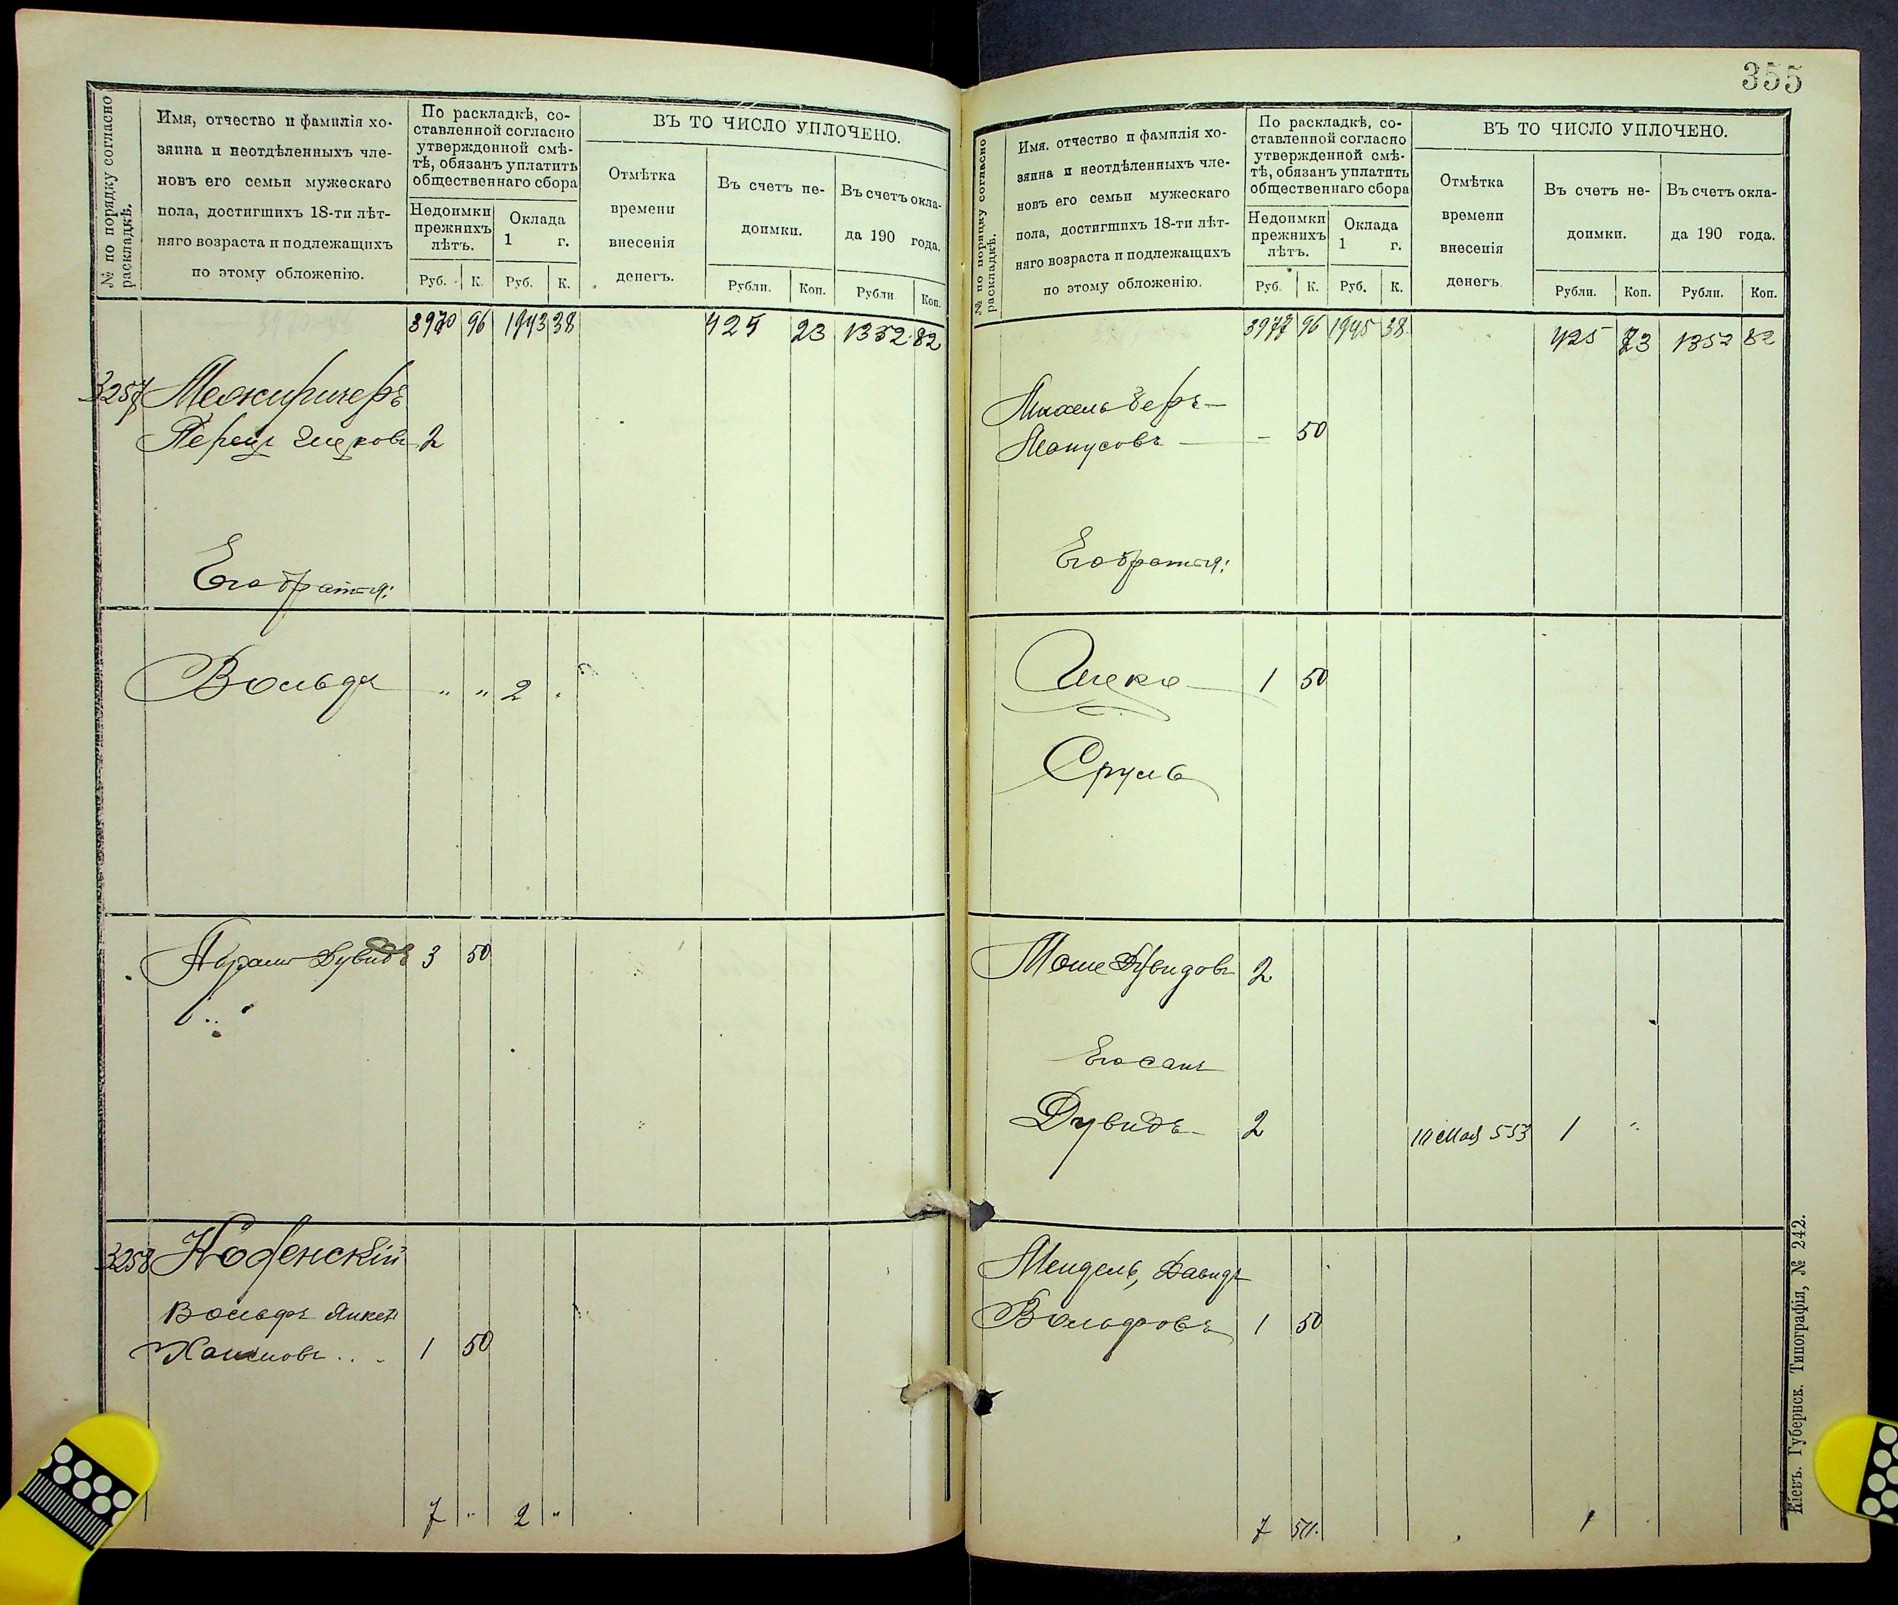 № по порядку согласно
раскладкѣ.
Имя, отчество и фамилія хо-
зяина и неотдѣленныхъ чле-
новъ его семьи мужескаго
пола, достигшихъ 18-ти лѣт-
няго возраста и подлежащихъ
по этому обложенію.
По раскладкѣ, со-
ставленной согласно
утвержденной смѣ-
тѣ, обязанъ уплатить
общественнаго сбора
Недоимки
прежнихъ
лѣтъ.
Оклада
1 г.
Руб. К. Руб. К.
ВЪ ТО ЧИСЛО УПЛОЧЕНО.
Отмѣтка
времени
внесенія
денегъ.
Въ счетъ не-
доимки.
Въ счетъ окла-
да 190 года.
Рубли. Коп. Рубли Коп.
3970 96 1943 38 425 23 1352 82
3257 Межиричеръ
Перецъ Ицковъ 2
Его братья:
Вольфъ " " 2 "
Абрамъ Дувидъ 3 50
3258
Вольфъ Янкел
Хаимовъ 1 50
7 " 2 "
355
№ по порядку согласно
раскладкѣ.
Имя. отчество и фамилія хо-
зяина и неотдѣленныхъ чле-
новъ его семьи мужескаго
пола, достигшихъ 18-ти лѣт-
няго возраста и подлежащихъ
по этому обложенію.
По раскладкѣ, со-
ставленной согласно
утвержденной смѣ-
тѣ, обязанъ уплатить
общественнаго сбора
Недоимки
прежнихъ
лѣтъ.
Оклада
1 г.
Руб. К. Руб. К.
ВЪ ТО ЧИСЛО УПЛОЧЕНО.
Отмѣтка
времени
внесенія
денегъ.
Въ счетъ не-
доимки.
Въ счетъ окла-
да 190 года.
Рубли. Коп. Рубли. Коп.
3977 96 1945 38 425 23 1352 82
Михель Беръ
Манусовъ - 50
Его братья:
Ицко 1 50
Сруль
Моше Дувидовъ 2
Его сынъ
Дувидъ 2 10 Мая 553 1 "
Мендель, Давидъ
Вольфовъ 1 50
7 50 1
Кіевъ. Губернск. Типографія, № 242.